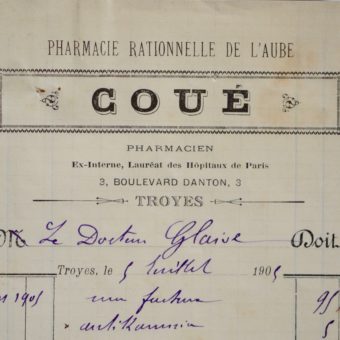 PHARMACIE RATIONNELLE DE L'AUBE
COUÉ
PHARMACIEN
Ex-Interne, Lauréat des Hôpitaux de Paris
3, BOULEVARD DANTON, 3
TROYES
M Le Docteur Glaive Doit
Troyes, le 5 Juillet 1905
1905 une facture 95
antikamnia 5